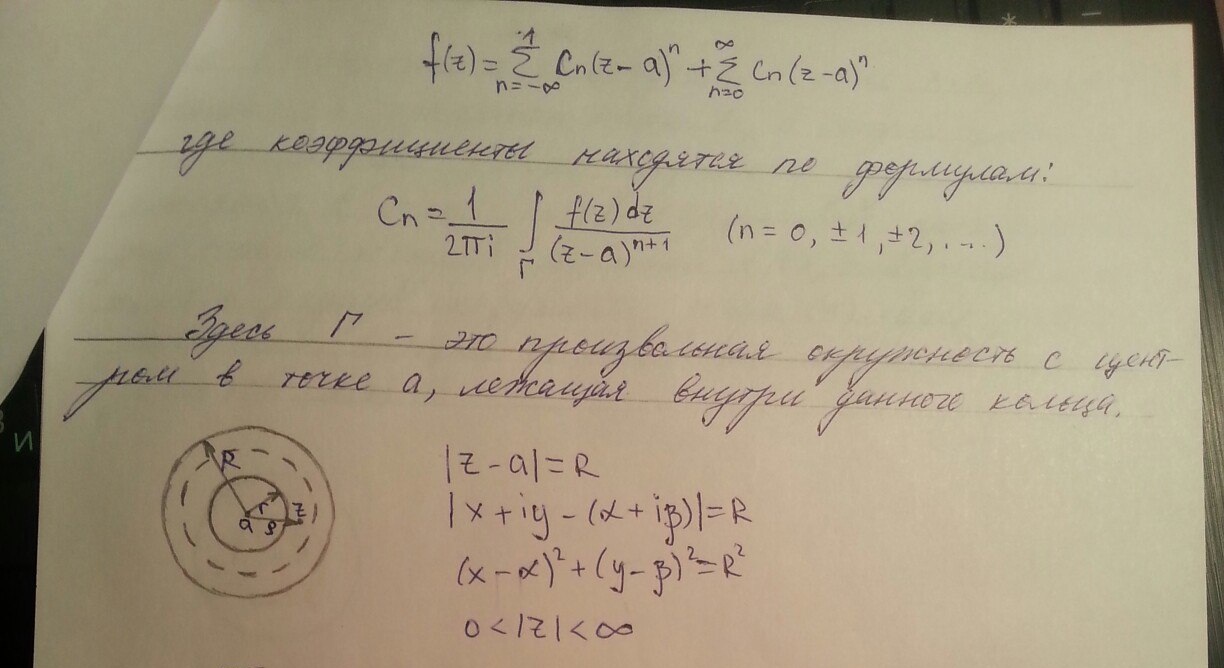 f(z) = ∑_{n=-∞}^{-1} Cn(z-a)^n + ∑_{n=0}^{∞} Cn(z-a)^n
где коэффициенты находятся по формулам:
Cn = 1/(2πi) ∫_Γ f(z)dz/(z-a)^{n+1} (n = 0, ±1, ±2, ...)
Здесь Г - это произвольная окружность с цент-
ром в точке a, лежащая внутри данного кольца.
R
r
a
ρ
z
|z-a| = R
|x+iy-(α+iβ)| = R
(x-α)²+(y-β)²=R²
0<|z|<∞
и